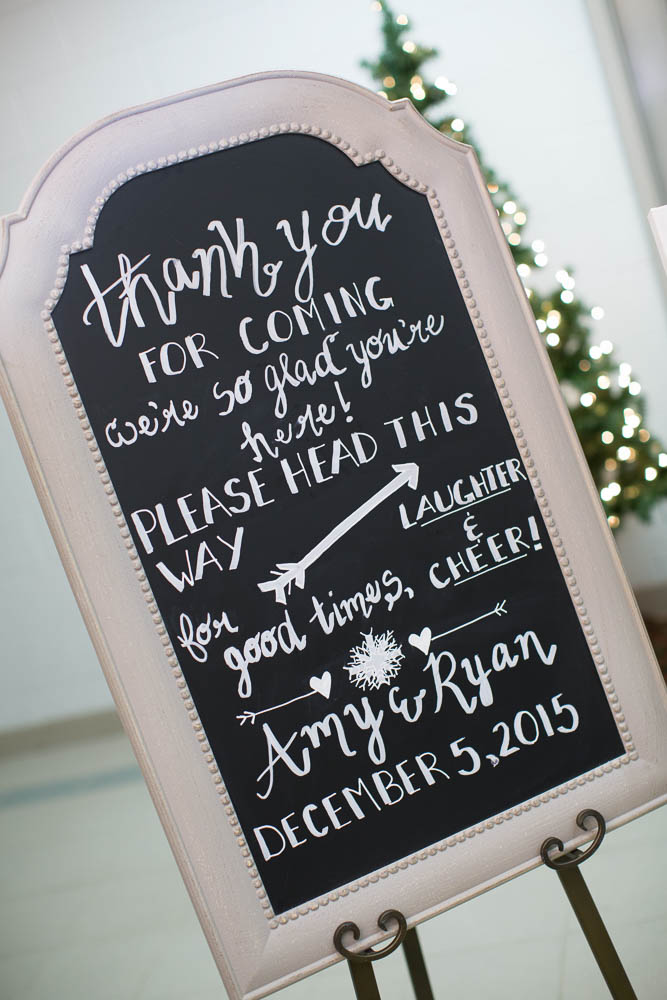 thank you
FOR COMING
we're so glad you're
here!
PLEASE HEAD THIS
WAY
LAUGHTER
&
for good times, CHEER!
Amy & Ryan
DECEMBER 5, 2015